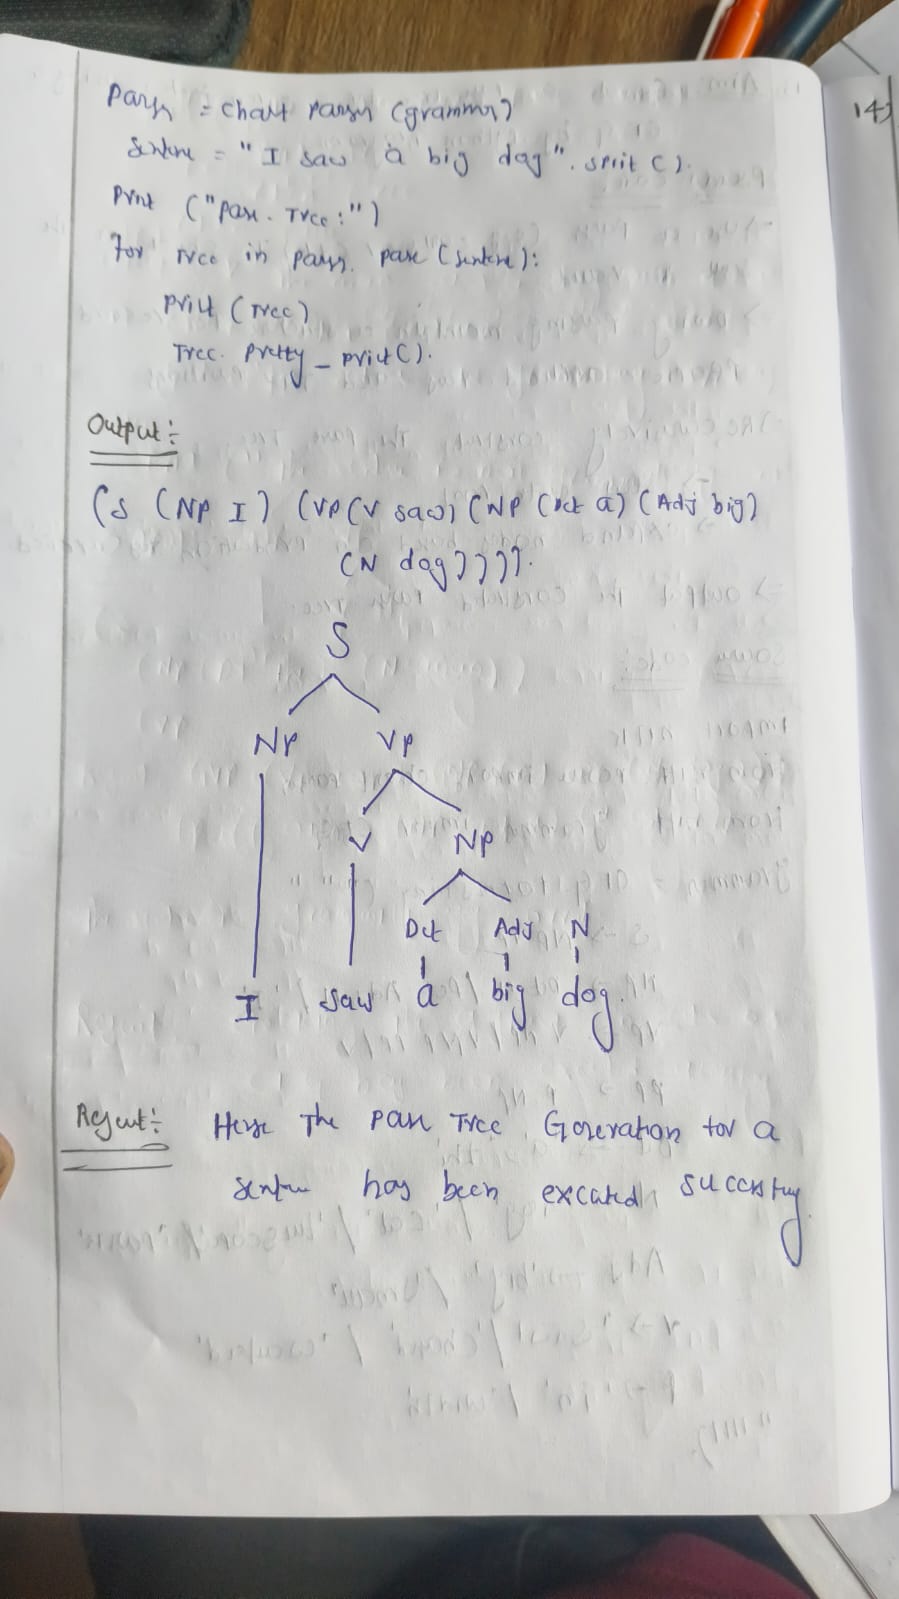 Parser = chart Parser (grammar)
Sentence = "I saw a big dog".split().
Print ("Parse. Tree:")
For Tree in parser. parse (sentence):
print (Tree)
Tree. Pretty_print().
Output:
(S (NP I) (VP (V saw) (NP (Det a) (Adj big)
(N dog)))).
S
NP VP
V NP
Det Adj N
I saw a big dog.
Result: Hense The Parse Tree Generation for a
sentence has been excuted successfuly.
14)